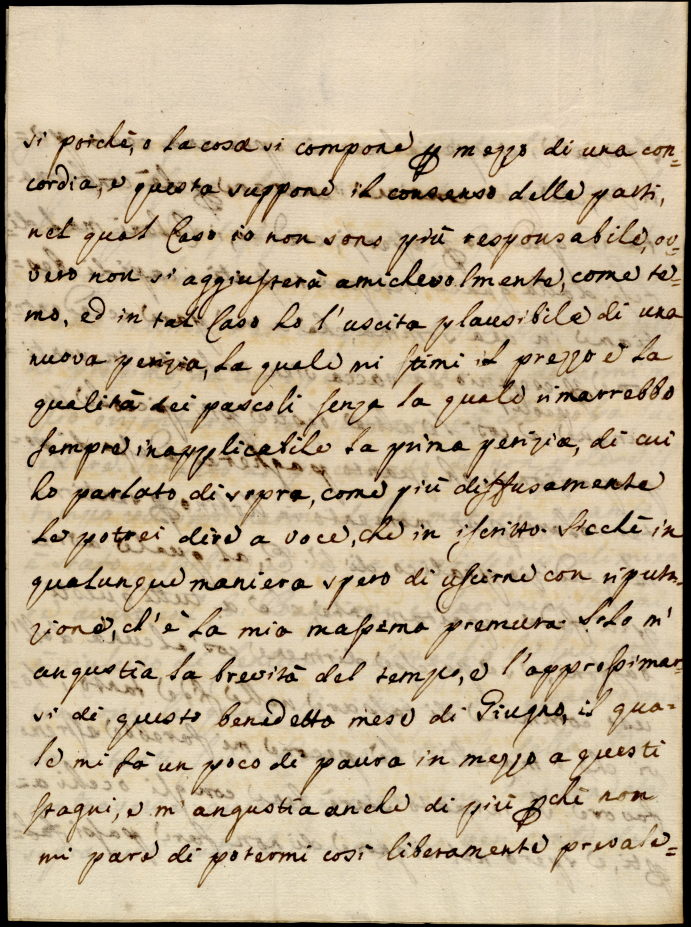 si poichè, o la cosa si compone ꝑ mezzo di una con=
cordia, e questa suppone il consenso delle parti,
nel qual Caso io non sono più responsabile, ov=
vero non si aggiusterà amichevolmente, come te=
mo, ed in tal Caso ho l'uscita plausibile di una
nuova perizia, la quale mi stimi il prezzo e la
qualità dei pascoli senza la quale rimarrebbe
sempre inapplicabile la prima perizia, di cui
ho parlato di sopra, come più diffusamente
le potrei dire a voce, che in iscritto. Sicchè in
qualunque maniera spero di uscirne con riputa=
zione, ch'è la mia massima premura. Solo m'
angustia la brevità del tempo, e l'approssimar=
si di questo benedetto mese di Giugno, il qua=
le mi fà un poco di paura in mezzo a questi
stagni, e m'angustia anche di più ꝑchè non
mi pare di potermi così liberamente prevale=